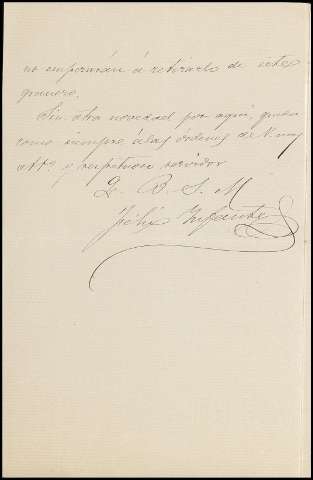 no empezarán á retirarlo de este
granero.
Sin otra novedad por aquí, queda
como siempre á las órdenes de V. muy
attº y respetuoso servidor
Q. B. S. M
Félix Infante